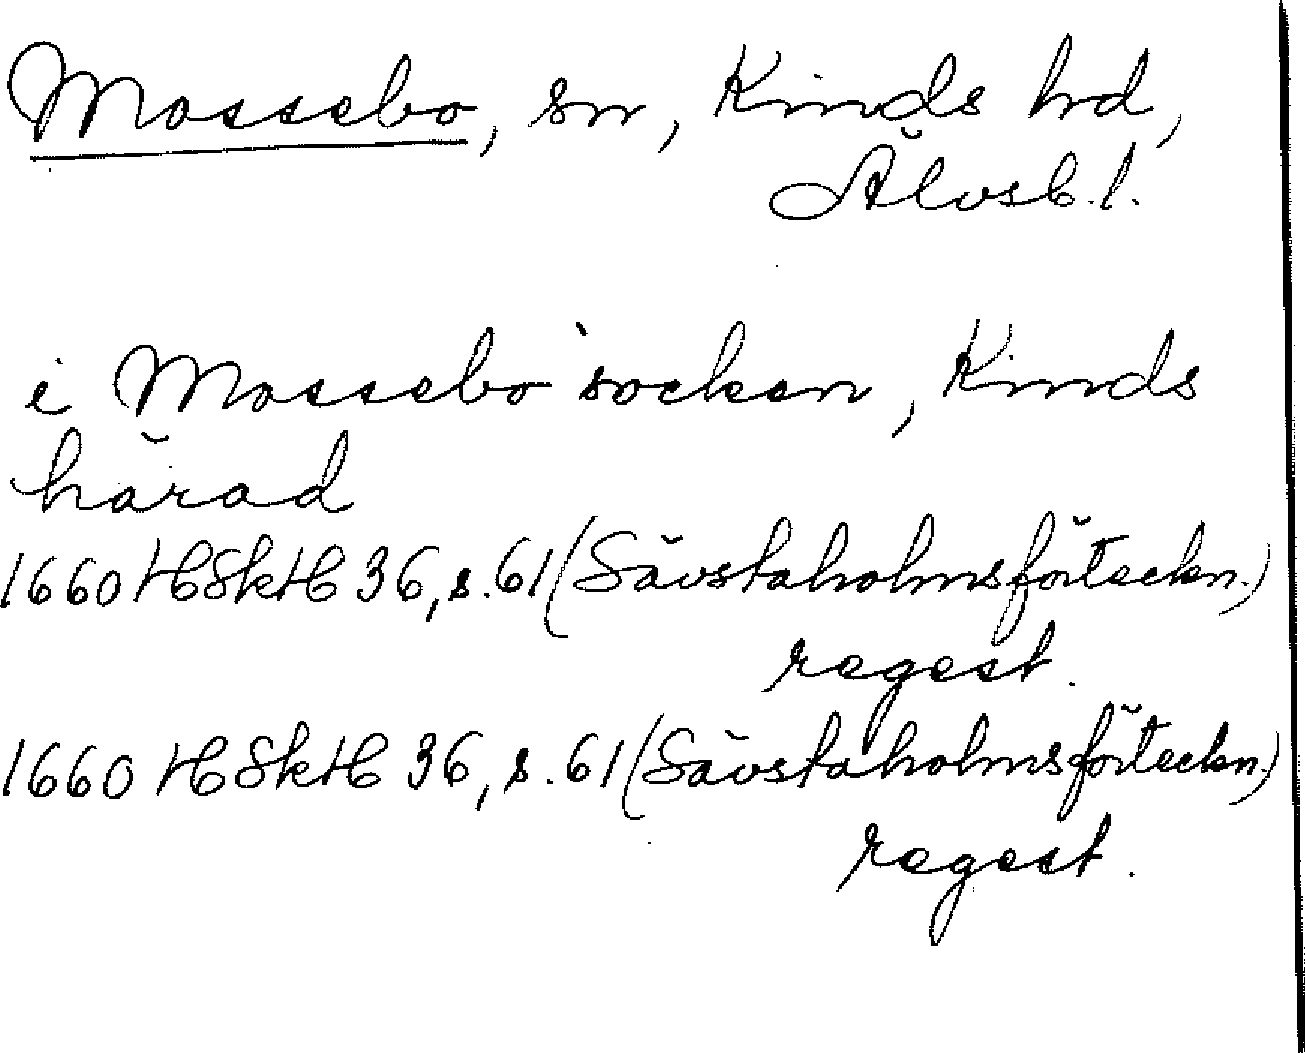 Mossebo, sn, Kinds hd,
Älvsb. l.
i Mossebo socken, Kinds
härad
1660 HSkH 36, s. 61 (Sävstaholmsförteckn.)
regest.
1660 HSkH 36, s. 61 (Sävstaholmsförteckn.)
regest.